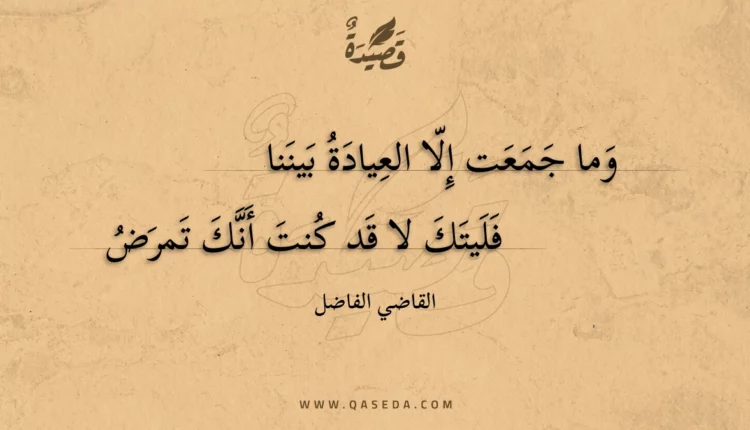 قَصِيْدَةٌ
وَما جَمَعَت إِلّا العِيادَةُ بَينَنا
فَلَيتَكَ لا قَد كُنتَ أَنَّكَ تَمرَضُ
القاضي الفاضل
WWW.QASEDA.COM